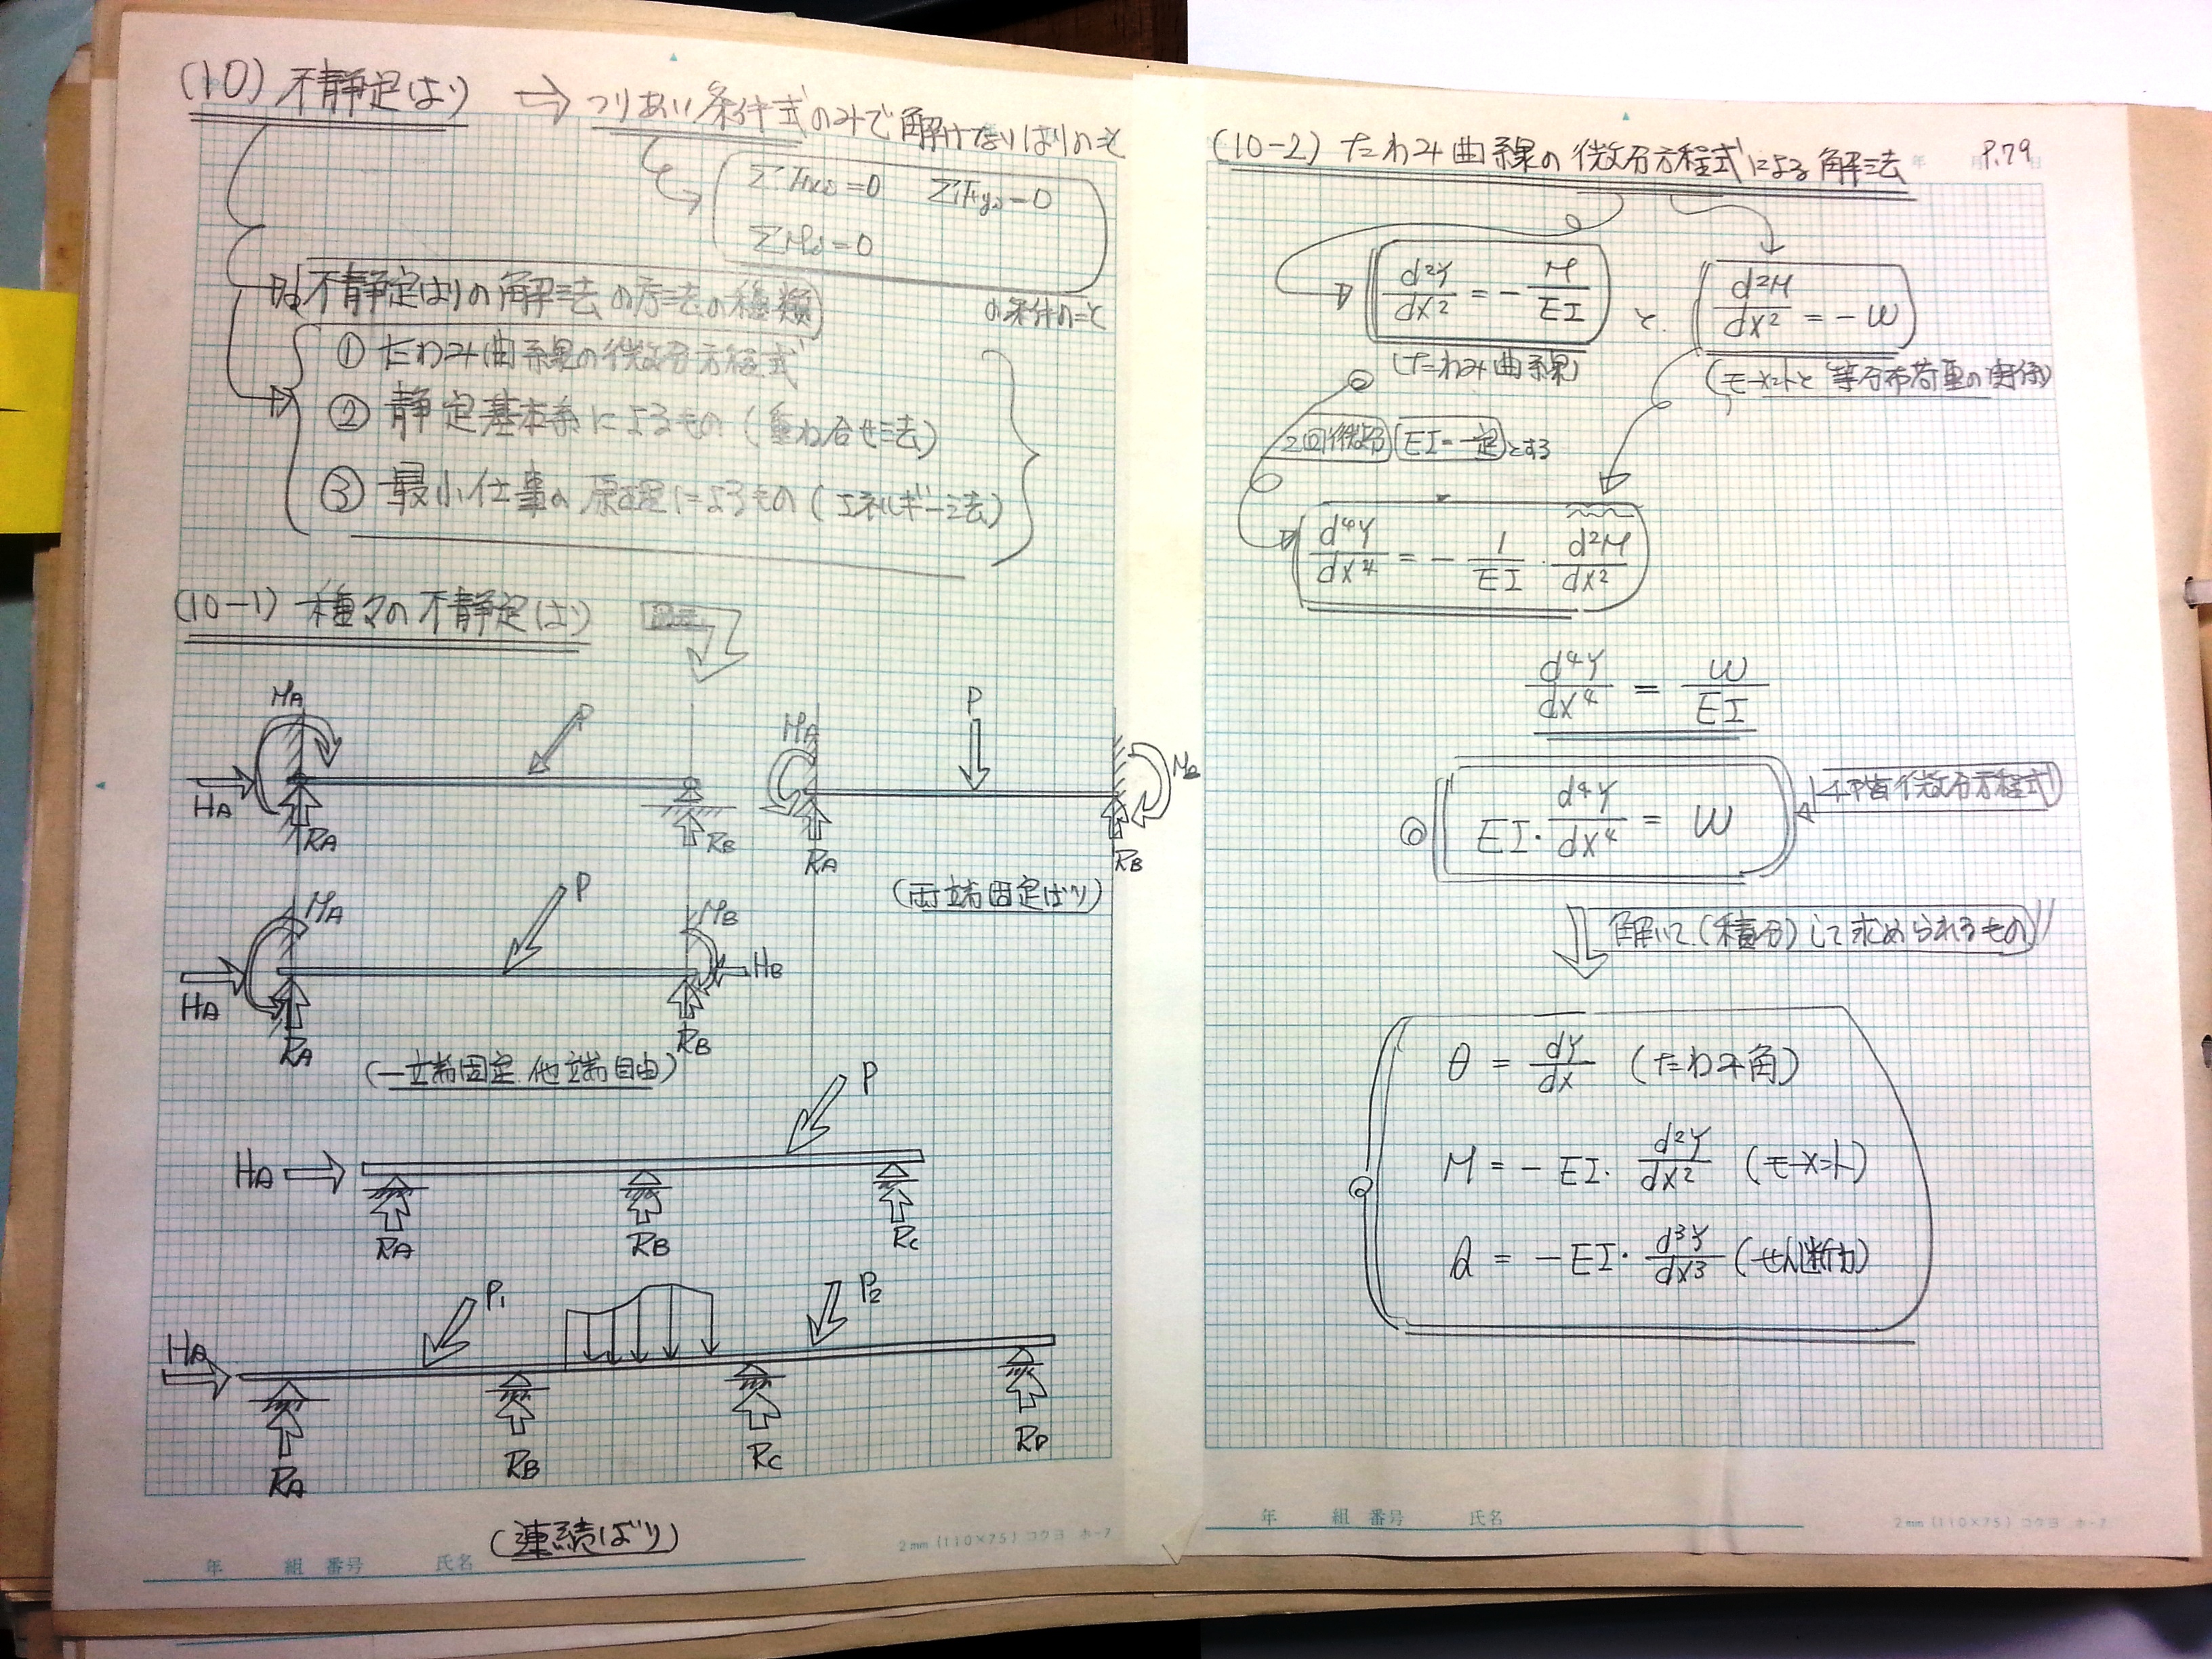 (10) 不静定はり ⇒ つりあい条件式のみで解けないはりのこと
ΣFxi=0 ΣFyi=0
ΣMi=0
の条件のこと
不静定はりの解法の方法の種類
① たわみ曲線の微分方程式
② 静定基本系によるもの (重ね合せ法)
③ 最小仕事の原理によるもの (エネルギー法)
(10-1) 種々の不静定はり
MA P
HA RA RB
MA P MB
RA RB
(両端固定ばり)
MA P MB
HA HB
RA RB
(一端固定.他端自由)
HA P
RA RB RC
HA P1 P2
RA RB RC RD
(連続ばり)
年 組 番号 氏名
2mm (110×75) コクヨ ホ-7
(10-2) たわみ曲線の微分方程式による解法 P.79
d²y/dx² = - M/EI と d²M/dx² = - w
(たわみ曲線) (モーメントと等分布荷重の関係)
2回微分 EI=一定とする
d⁴y/dx⁴ = - 1/EI · d²M/dx²
d⁴y/dx⁴ = w/EI
EI· d⁴y/dx⁴ = w 4階微分方程式
解いて(積分)して求められるもの
θ = dy/dx (たわみ角)
M = - EI· d²y/dx² (モーメント)
Q = -EI· d³y/dx³ (せん断力)
年 組 番号 氏名
2mm (110×75) コクヨ ホ-7